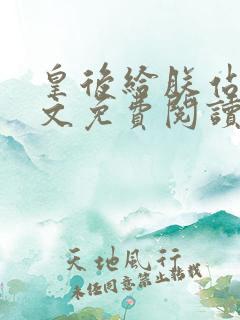 皇後給朕佔
文免費閱讀
天地風行
未經同意禁止轉載